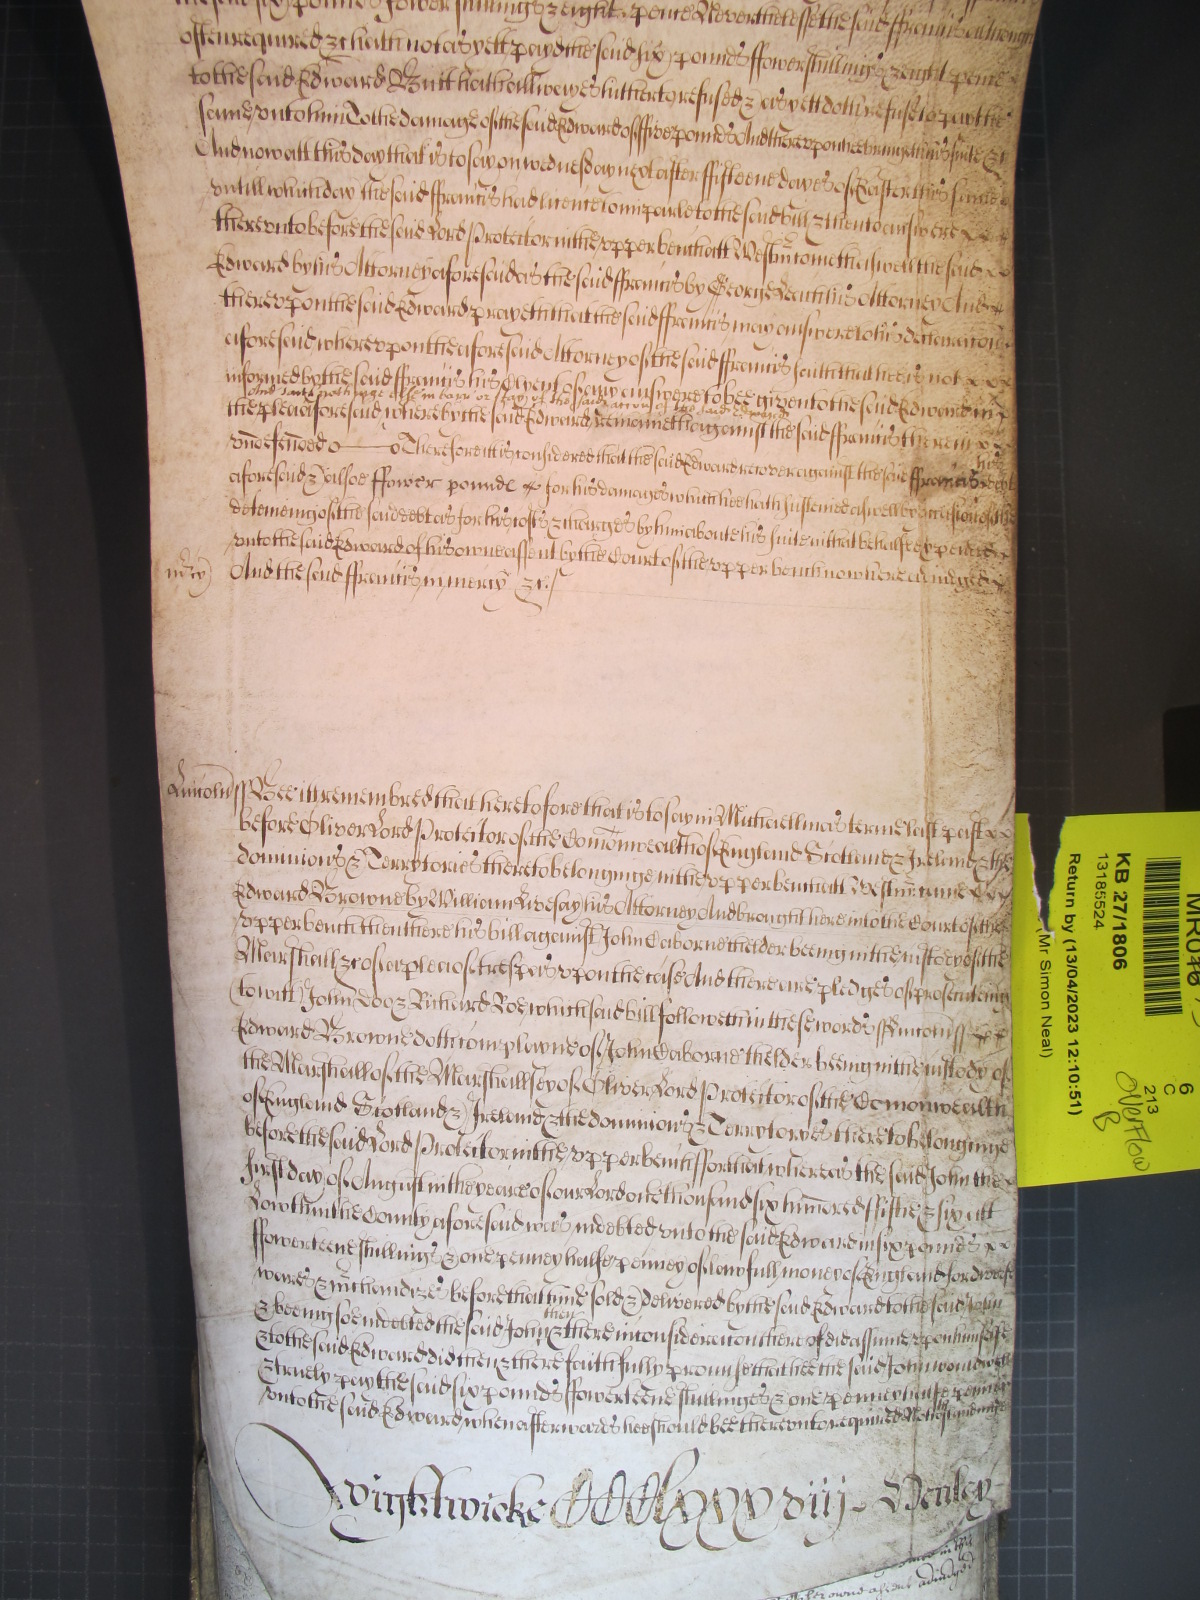 the said six pounds fower shillings & eight pence Neverthelesse the said Ffrauncis although
often required &c hath not as yett payd the said six pounds ffower shillings & eight pence
to the said Edward Butt hath allwayes hitherto refused & as yett doth refuse to pay the
same unto him To the damage of the said Edward of ffive pounds And thereupon hee bringeth his suite &c
And now att this day that is to say on wednesday next after ffifteene dayes of Easter this same
untill which day the said ffrauncis had licence to imparle to the said bill & then to answere
thereunto before the said Lord Protector in the upper bench att Westmr cometh aswell the said
Edward by his Attorney aforesaid as the said ffrauncis by George his Attorney And
thereupon the said Edward prayeth that the said ffrauncis may answere to his declaracon
aforesaid whereupon the aforesaid Attorney of the said ffrauncis saith that hee is not
informed by the said ffrauncis his Clyent of any answere to bee given to the said Edward in
And saith nothinge else in barr or stay of the said accon of the said Edward
the plea aforesaid whereby the said Edward remaineth against the said ffrauncis therein
undefended Therefore itt is considered that the said Edward recover against the said ffrancis his debt
aforesaid & alsoe ffower pounds for his damages which hee hath susteined aswell by occasion of the
deteineing of the said debt as for his costs & charges by him aboute his suite in that behalfe expended
unto the said Edward of his owne assent by the Court of the upper bench now here adiudged
mercy And the said ffrauncis in mercy &c
Lincoln ss Bee itt remembred that heretofore that is to say in Michaellmas terme last past
before Oliver Lord Protector of the Comonwealth of England Scotland & Ireland & the
dominions & Terrytories thereto belonginge in the upper bench att Westmr came
Edward Browne by William Livesay his Attorney And brought here into the Court of the
upper bench then there his bill against John Caborne thelder beeing in the custody of the
Marshall &c of a plea of trespas upon the case And there are pledges of prosecuteing
(to wit) John Doo & Richard Roe which said bill followeth in these words ss Lincoln ss
Edward Browne doth complayne of John Caborne thelder beeing in the custody of
the Marshall of the Marshallsey of Oliver Lord Protector of the Comonwealth
of England Scotland & Ireland & the dominions & Terrytoryes thereto belonginge
before the said Lord Protector in the upper bench ffor that whereas the said John the
first day of August in the yeare of our Lord one thousand six hundred ffiftie & six att
Lowth in the County aforesaid was indebted unto the said Edward in six pounds
ffowerteene shillings & one penney halfe penney of lawfull money of England for diverse
wares & mchandizes before that time sold & delivered by the said Edward to the said John
& beeing soe indebted the said John then & there in consideracon thereof did assume upon himselfe
& to the said Edward did then & there faithfully promise that hee the said John would well
& truely pay the said six pounds ffowerteene shillinges & one penney halfe penney
unto the said Edward when afterwards hee should bee thereunto required
Wightwicke CCCClxxxviij Henley
KB 27/1806
13185524
Return by (13/04/2023 12:10:51)
(Mr Simon Neal)
6
C
213
Overflow
B